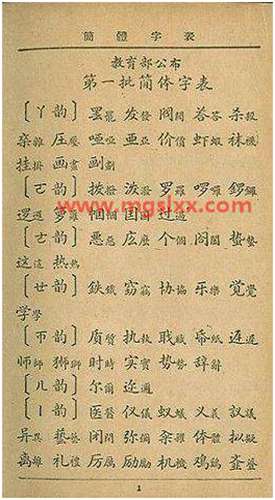 簡體字表
教育部公布
第一批简体字表
〔ㄚ韵〕罢罷 发發 阀閥 荅答 杀殺
杂雜 压壓 哑啞 亚亞 价價 虾蝦 袜襪
挂掛 画畫 划劃
www.mgslxx.com
〔ㄛ韵〕拨撥 泼潑 罗羅 啰囉 锣鑼
逻邏 萝蘿 国國 过過
〔ㄜ韵〕恶惡 庅麼 个個 阁閣 蛰蟄
这這 热熱
〔ㄝ韵〕鉄鐵 窃竊 协協 乐樂 觉覺
学學
〔ㄭ韵〕质質 执執 职職 帋紙 迟遲
师師 狮獅 时時 实實 势勢 辞辭
〔ㄦ韵〕尔爾 迩邇
〔ㄧ韵〕医醫 仪儀 蚁蟻 义義 议議
异異 艺藝 闭閉 弥彌 籴糴 体體 拟擬
离離 礼禮 厉厲 励勵 机機 鸡鷄
1